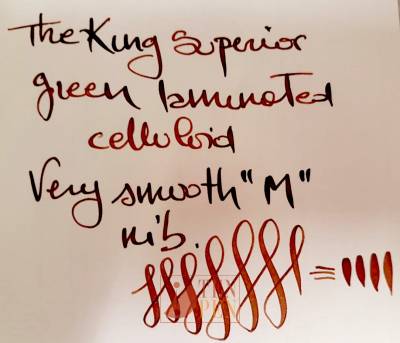 The King Superior
green laminated
celluloid
Very smooth "M"
nib.
PEN